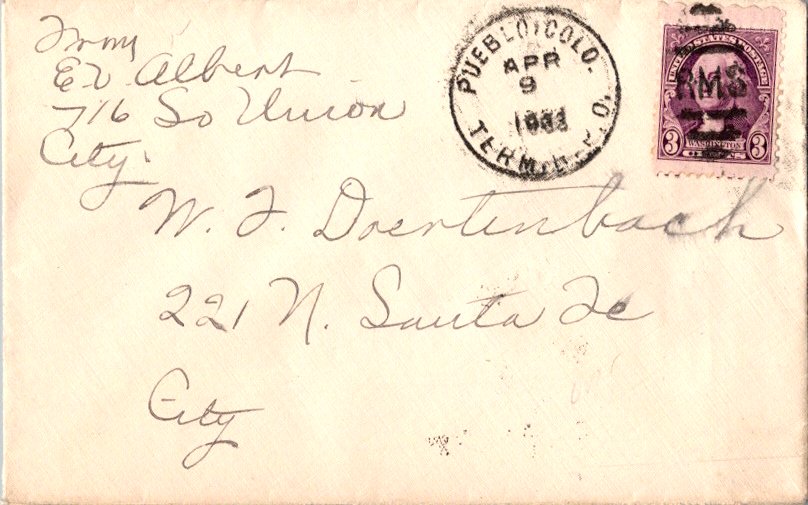 From
Ed Albert
716 So Union
City.
PUEBLO, COLO.
APR
9
TERM. R.P.O.
UNITED STATES POSTAGE
RMS
WASHINGTON
3 CENTS 3
W. F. Doertenbach
221 N. Santa Fe
City